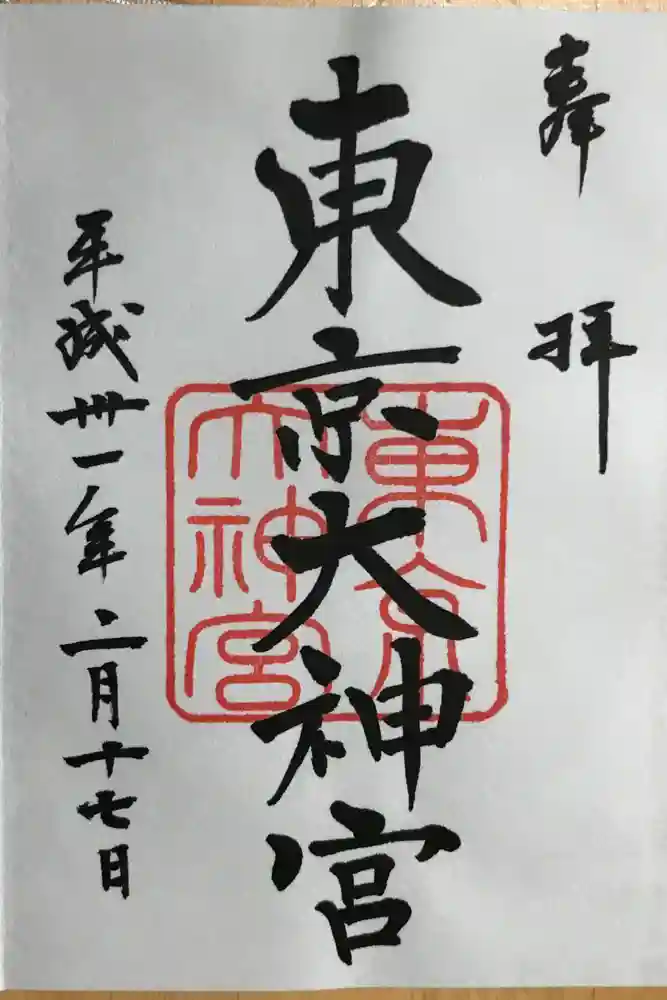 奉拝
東京大神宮
東京
大神宮
平成卅一年二月十七日